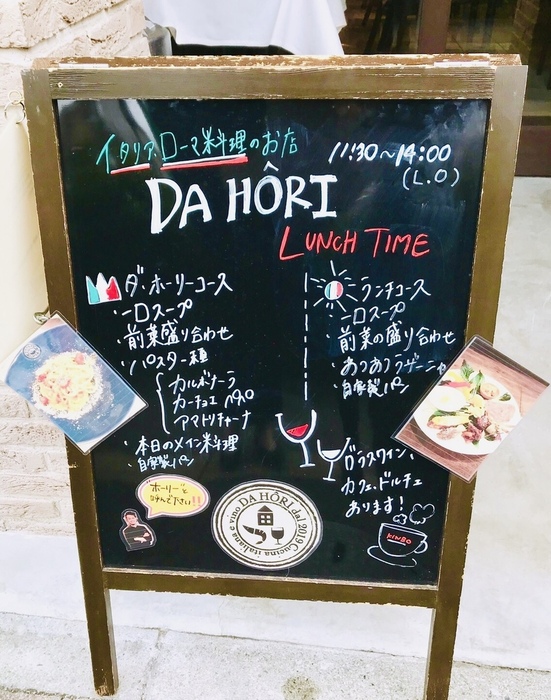 イタリア.ローマ料理のお店
11:30~14:00
(L.O)
DA HÔRI
LUNCH TIME
ダ・ホーリーコース
・一口スープ
・前菜盛り合わせ
・パスタ一種
カルボナーラ
カーチョエペペ
アマトリチャーナ
・本日のメイン料理
・自家製パン
ランチコース
・一口スープ
・前菜の盛り合わせ
・あつあつラザーニャ
・自家製パン
グラスワイン、
カフェ、ドルチェ
あります!
"ホーリー"と
呼んで下さい!!
DA HÔRI dal 2019 Cucina italiana e vino
KIMBO